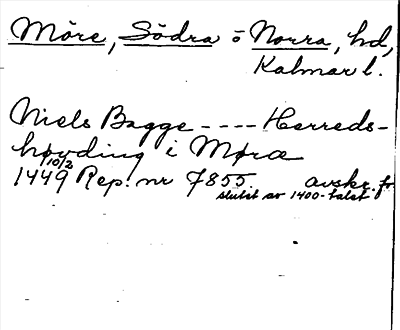 Möre, Södra o Norra, hd,
Kalmar l.
Niels Bagge ---- Herreds-
høvding i Møræ
10/2
1449 Rep. nr 7855. avskr. fr
slutet av 1400-talet